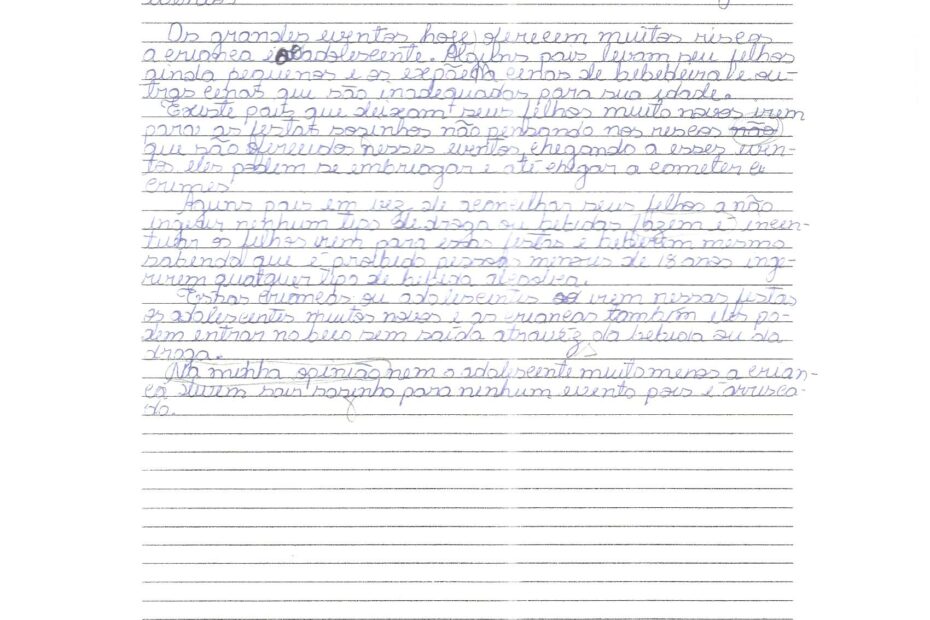 eventos
Os grandes eventos hoje oferecem muitos riscos
a criança e adolescente. Alguns pais levam seu filhos
ainda pequenos e os expõe a cenas de bebedeira e ou-
tras cenas que são inadequadas para sua idade.
Existe pais que deixam seus filhos muito novos irem
para as festas sozinhos não pensando nos riscos não
que são oferecidos nesses eventos, chegando a esses even-
tos eles podem se embriagar e até chegar a cometer
crimes.
Aguns pais em vez de aconselhar seus filhos a não
ingerir nenhum tipo de droga ou bebidas fazem é incen-
tivar os filhos irem para essas festas e beberem mesmo
sabendo que é proibido pessoas menores de 18 anos inge-
rirem qualquer tipo de bebida alcoolica.
Essas crianças ou adolescentes irem nessas festas
os adolescentes muitos novos e as crianças também eles po-
dem entrar no beco sem saída atravéz da bebida ou da
droga.
Na minha opinião nem o adolescente muito menos a crian-
ça devem sair sozinho para nenhum evento pois é arrisca-
do.